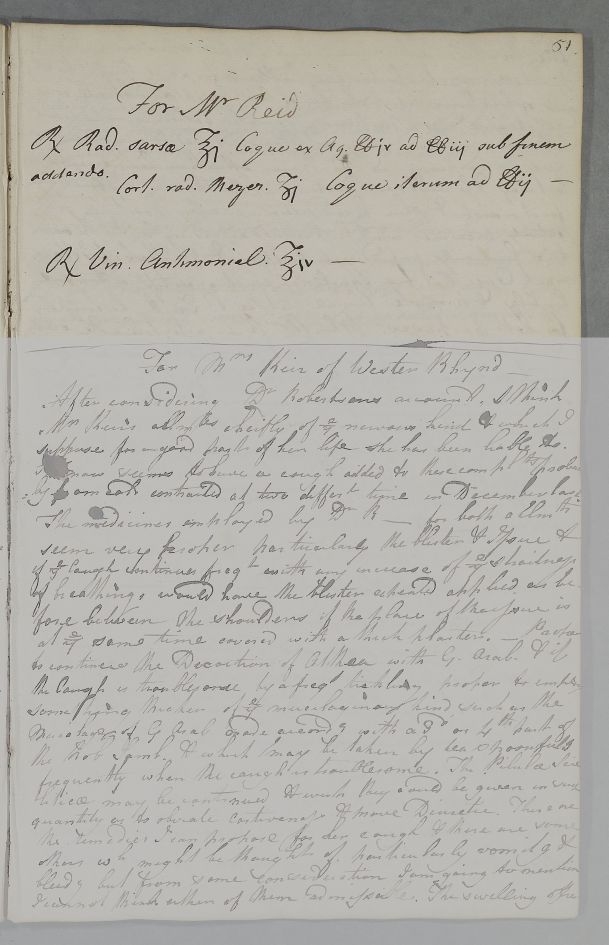 51.
For Mr Reid
℞ Rad. sarsæ ℥j Coque ex Aq. ℔iv ad ℔iij sub finem
addendo.
Cort. rad. Mezer. ʒj Coque iterum ad ℔ij —
℞ Vin. Antimonial. ℥iv —
For Mrs Keir of Wester Rhynd —
After considering Dr Robertsons account, I think
Mrs Keirs ailmts cheifly of ye nervous kind & which I
suppose for a good part of her life she has been liable to.
now seems to have a cough added to these complts probab
ly from cold contracted at two differt time in December last
The medicines employed by Dr R — for both ailmts
seem very proper particularly the blister & Issue &
if ye Cough continues freqt with any increase of ye straitness
of breathing would have the blister repeated applied as be-
fore between the shoulders if the place of the issue is
at ye same time covered with a thick plaster. —
to continue the Decoction of Althea with G. Arab. & if
the Cough is troublesome by a freqt tickling proper to employ
something thicker of ye mucilaginous kind such as the
Mucilage of G Arab made according with a 3d or 4th part of
the & which may be taken by tea spoonfulls
frequently when the cough is troublesome. The Pilulæ Scil
liticæ may be continued & wish they could be given in such
quantity as to obviate costiveness & prove Diuretic. These are
the remedies I can propose for her cough & there are some
others wh might be thought of particularly vomitg &
bleedg but from some consideration I am going to mention
I cannot think either of them admissable. The swelling of ye